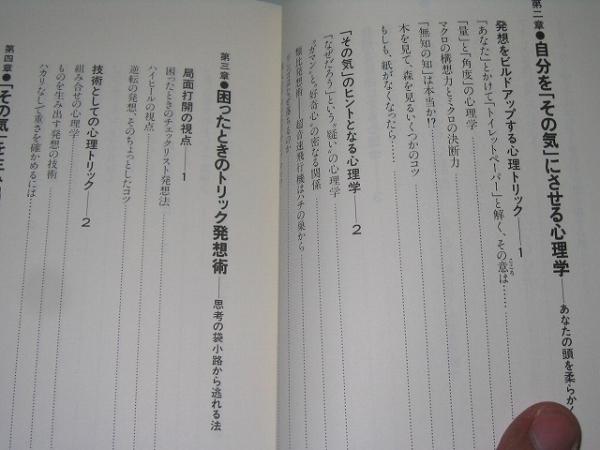 第二章●自分を「その気」にさせる心理学――あなたの頭を柔らかく
発想をビルドアップする心理トリック――1
「あなた」とかけて「トイレットペーパー」と解く、その意は……
こころ
「量」と「角度」の心理学
マクロの構想力とミクロの決断力
「無知の知」は本当か!?
木を見て、森を見るいくつかのコツ
もしも、紙がなくなったら
「その気」のヒントとなる心理学――2
「なぜだろう」という〝疑い〟の心理学
〝ガマン〟と〝好奇心〟の密なる関係
類比発想術――超音速飛行機はハチの巣から
第三章●困ったときのトリック発想術――思考の袋小路から逃れる法
局面打開の視点――1
困ったときのチェックリスト発想法
ハイヒールの視点
逆転の発想、そのちょっとしたコツ
技術としての心理トリック――2
組み合せの心理学
ものを生み出す発想の技術
ハカリなしで重さを確かめるには
第四章●「その気」